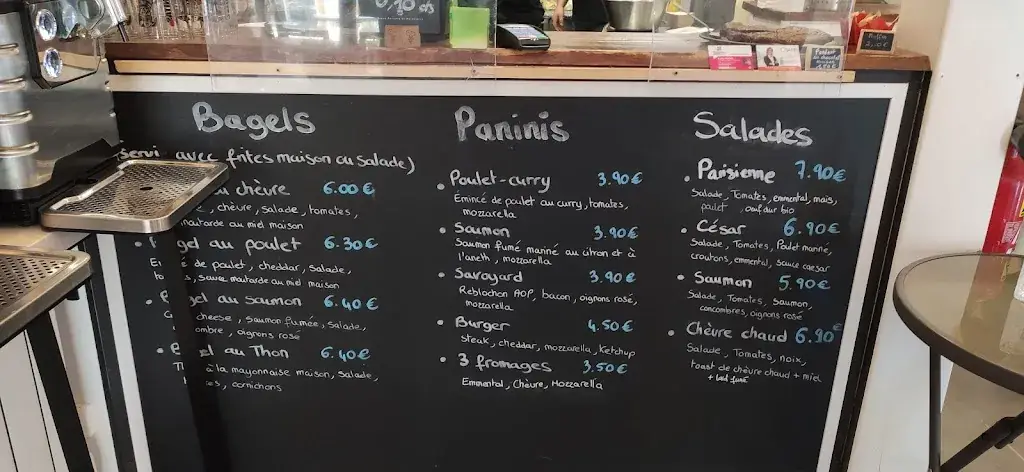 Bagels
(servi avec frites maison ou Salade)
chèvre 6.00€
, chèvre, salade, tomates,
moutarde au miel maison
au poulet 6.30€
de poulet, cheddar, Salade,
, Sauce moutarde au miel maison
au Saumon 6.40€
cheese, Saumon fumée, Salade,
oignons rosé
au Thon 6.40€
à la mayonnaise maison, Salade,
cornichons
Paninis
• Poulet-curry 3.90€
Emincé de poulet au curry, tomates,
mozzarella
• Saumon 3.90€
Saumon fumé mariné au citron et à
l'aneth, mozzarella
• Savoyard 3.90€
Reblochon AOP, bacon, oignons rosé,
mozzarella
• Burger 4.50€
Steak, cheddar, mozzarella, Ketchup
• 3 fromages 3.50€
Emmental, Chèvre, Mozzarella
Salades
• Parisienne 7.90€
Salade, Tomates, emmental, maïs,
poulet, oeuf dur bio
• César 6.90€
Salade, Tomates, Poulet mariné,
croutons, emmental, sauce caesar
• Saumon 5.90€
Salade, Tomates, Saumon,
concombres, oignons rosé
• Chèvre chaud 6.90€
Salade, Tomates, noix,
toast de chèvre chaud + miel
+ lard fumé